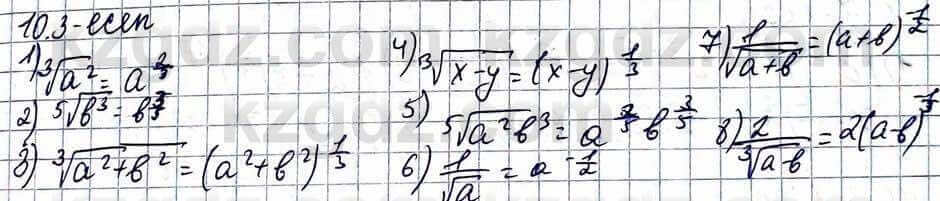 10.3-есеп
1) ∛a² = a^(2/3)
2) ⁵√b³ = b^(3/5)
3) ∛(a²+b²) = (a²+b²)^(1/3)
4) ∛(x-y) = (x-y)^(1/3)
5) ⁵√(a²b³) = a^(2/5) b^(3/5)
6) 1/√a = a^(-1/2)
7) 1/√(a+b) = (a+b)^(-1/2)
8) 2/∛(a-b) = 2(a-b)^(-1/3)